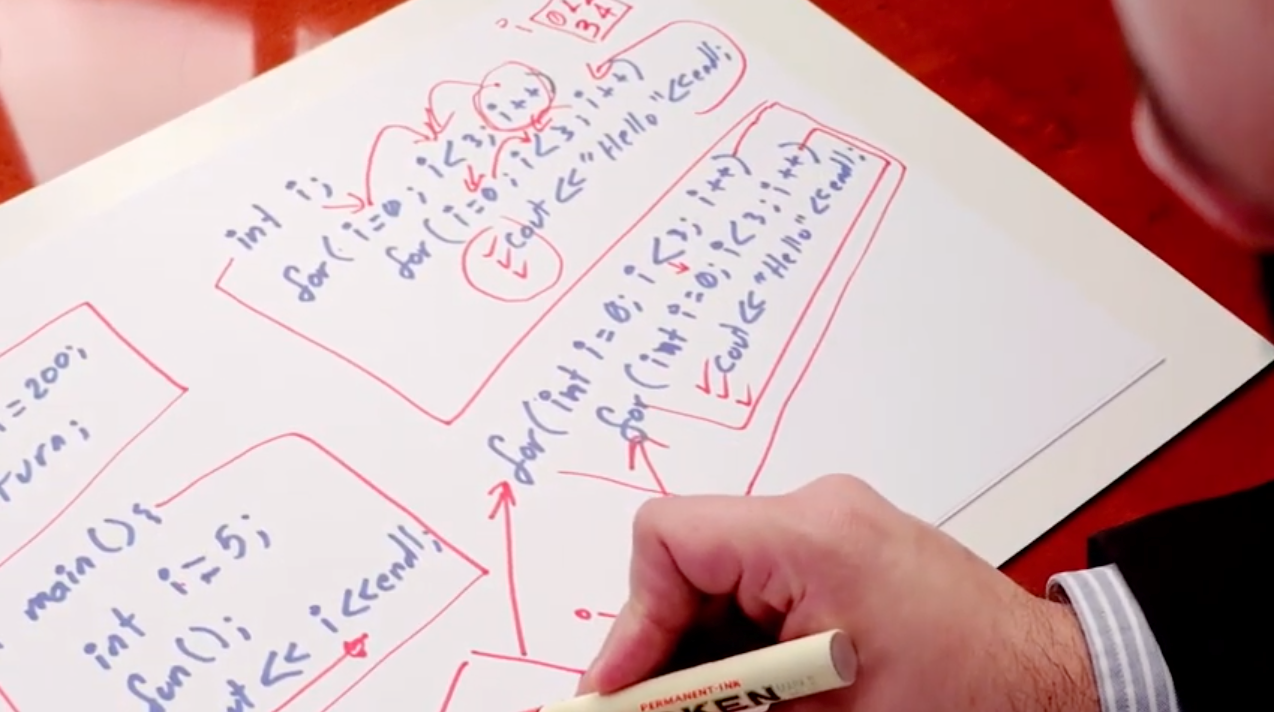 i 0 1 2 3 4
int i;
for( i=0; i<3; i++)
for( i=0; i<3; i++)
cout << "Hello" <<endl;
for(int i=0; i<3; i++)
for(int i=0; i<3; i++)
cout << "Hello" <<endl;
i=200;
main(){
int i=5;
fun();
<< i<<endl;
PERMANENT-INK